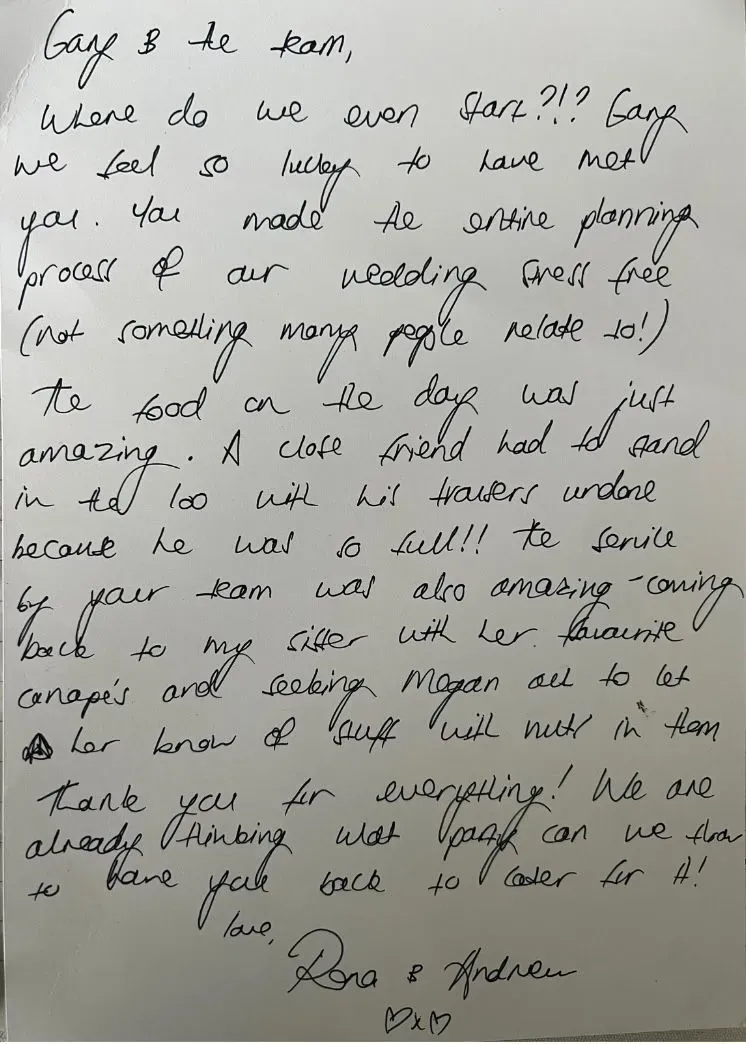 Gary & the team,
Where do we even start?!? Gary
we feel so lucky to have met
you. You made the entire planning
process of our wedding stress free
(not something many people relate to!)
The food on the day was just
amazing. A close friend had to stand
in the loo with his trousers undone
because he was so full!! The service
by your team was also amazing - coming
back to my sister with her favourite
canapé's and seeking Megan out to let
her know of stuff with nuts in them
Thank you for everything! We are
already thinking what party can we throw
to have you back to cater for it!
love,
Rona & Andrew
♡x♡